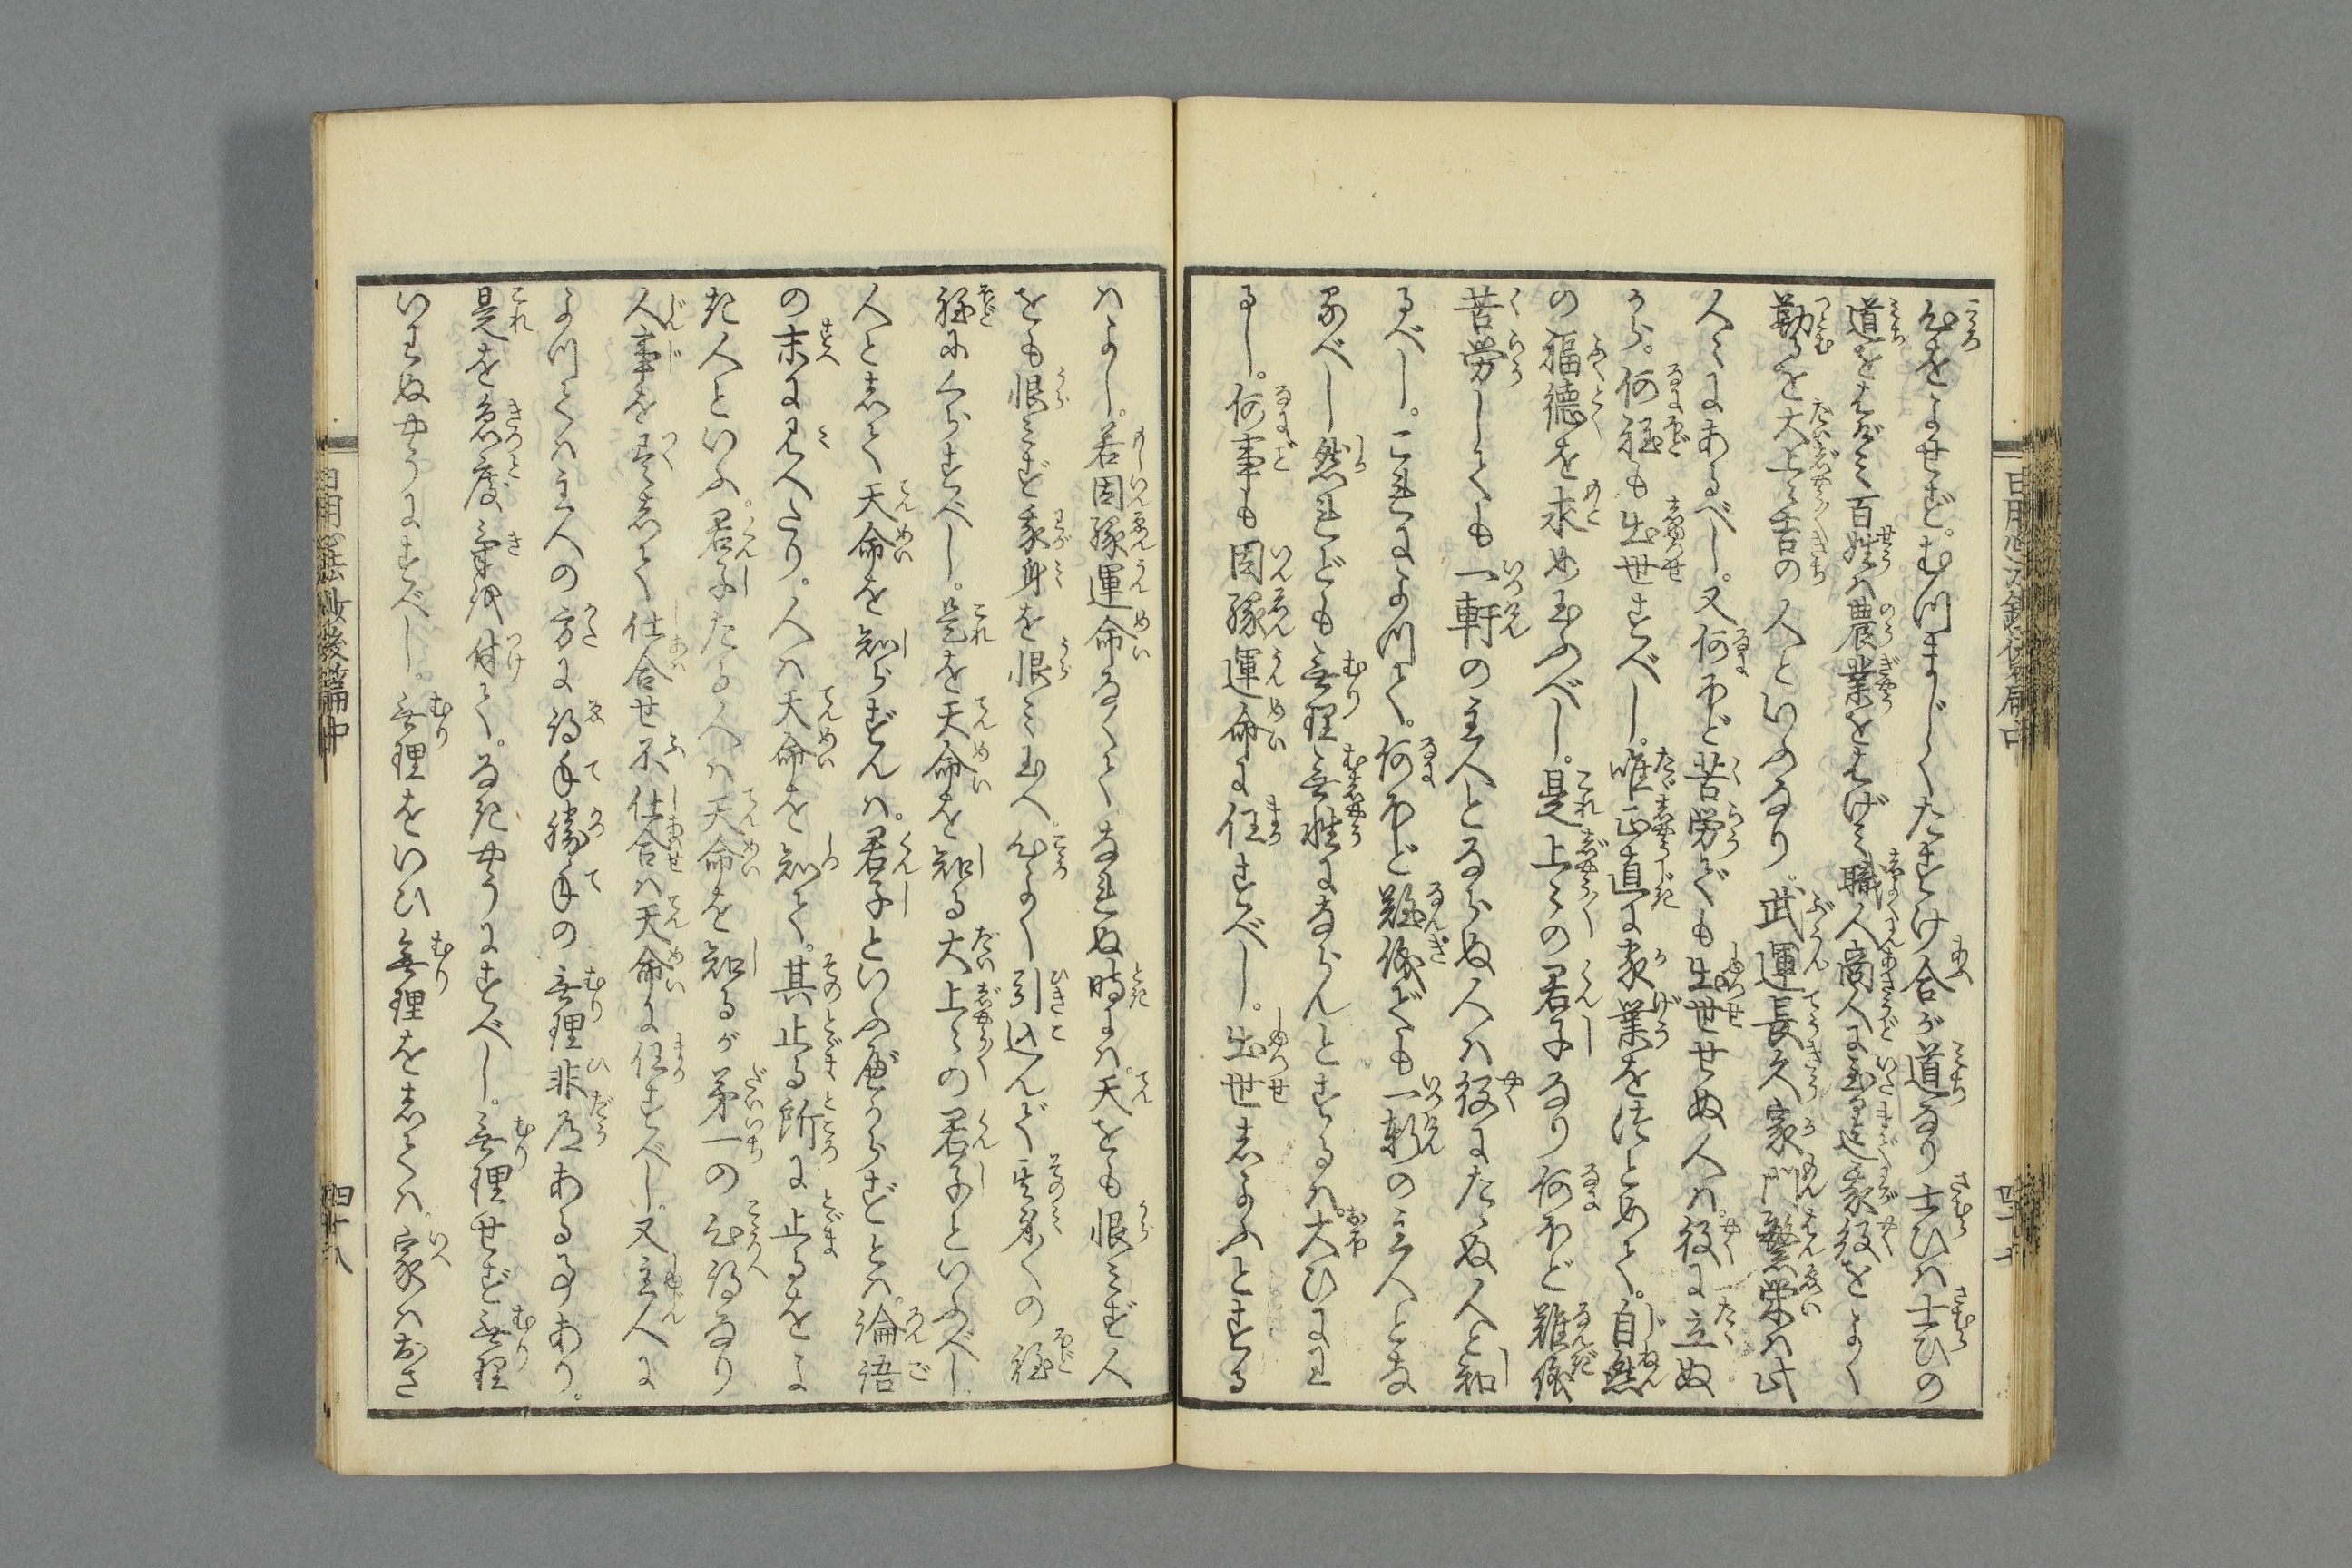 心をよせず。むつまじくたすけ合が道なり士ひハ士ひの
道をはげミ百姓ハ農業をはげミ職人商人に至る迄家役をよく
勤るを大上々吉の人といふなり。武運長久家門繁栄ハ此
人々にあるべし。又何ほど苦労でも出世せぬ人ハ。役に立ぬ
から。何程も出世すべし。唯正直に家業をつとめて。自然
の福徳を求め玉ふべし。是上々の君子なり何ほど難儀
苦労しても一軒の主人とならぬ人ハ役にたゝぬ人と知
るべし。これによつて。何ほど難儀でも一軒の主人とな
るべし然れども無理無性にならんとするハ。大ひにわ
るし。何事も因縁運命に任すべし。出世しようとする
ハよし。若因縁運命なくて。なれぬ時にハ。天をも恨ミず人
をも恨ミず我身を恨ミ玉へ。心よく引込んで其身々の程
程にくらすべし。是を天命を知る大上々の君子といふべし。
人として天命を知らずんハ。君子といふべからずとハ。論語
の末に見へたり。人ハ天命を知て。其止る所に止るをよ
き人といふ。君子たる人ハ天命を知るが第一の心得なり
人事を尽して仕合せ不仕合ハ天命に任すべし。又主人に
よつてハ主人の方に得手勝手の無理非道ある事あり。
是を急度気を付て。なきやうにすべし。無理せず無理
いわぬやうにすべし。無理をいひ無理をしてハ。家ハおさ
四十八